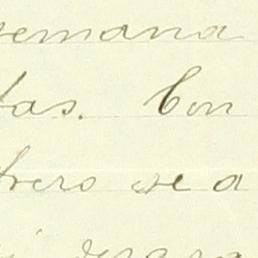 semana
tas. Con
trero se a